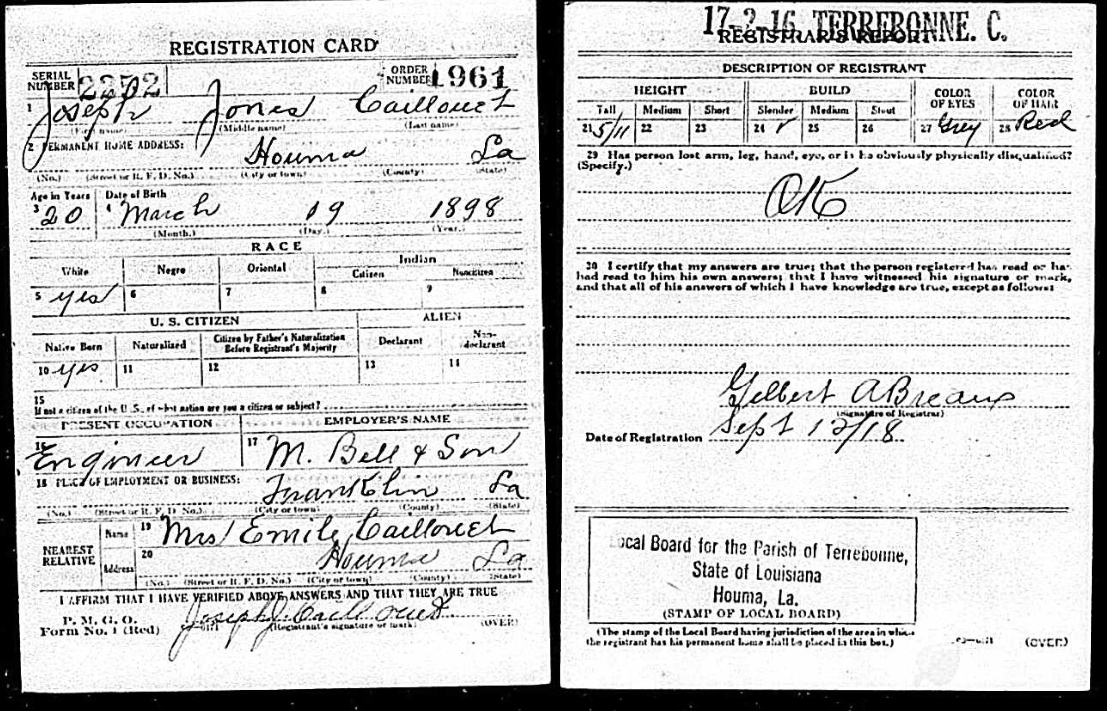 REGISTRATION CARD
SERIAL NUMBER 2292 ORDER NUMBER 1961
1 Joseph Jones Caillouet
(First name) (Middle name) (Last name)
2 PERMANENT HOME ADDRESS:
Houma La
(No.) (Street or R. F. D. No.) (City or town) (County) (State)
Age in Years Date of Birth
3 20 4 March 19 1898
(Month.) (Day.) (Year.)
RACE
White Negro Oriental Indian
Citizen Noncitizen
5 yes 6 7 8 9
U. S. CITIZEN ALIEN
Native Born Naturalized Citizen by Father's Naturalization Before Registrant's Majority Declarant Non-declarant
10 yes 11 12 13 14
15
If not a citizen of the U. S., of what nation are you a citizen or subject?
PRESENT OCCUPATION EMPLOYER'S NAME
16 Engineer 17 M. Bell & Son
18 PLACE OF EMPLOYMENT OR BUSINESS:
Franklin La
(No.) (Street or R. F. D. No.) (City or town) (County) (State)
NEAREST RELATIVE
Name 19 Mrs Emile Caillouet
Address 20 Houma La
(No.) (Street or R. F. D. No.) (City or town) (County) (State)
I AFFIRM THAT I HAVE VERIFIED ABOVE ANSWERS AND THAT THEY ARE TRUE
P. M. G. O.
Form No. 1 (Red) Joseph J Caillouet
(Registrant's signature or mark) (OVER)
17-2-16 TERREBONNE. C.
REGISTRAR'S REPORT
DESCRIPTION OF REGISTRANT
HEIGHT BUILD COLOR OF EYES COLOR OF HAIR
Tall Medium Short Slender Medium Stout
21 5/11 22 23 24 25 26 27 Grey 28 Red
29 Has person lost arm, leg, hand, eye, or is he obviously physically disqualified?
(Specify.)
OK
30 I certify that my answers are true; that the person registered has read or has
had read to him his own answers; that I have witnessed his signature or mark,
and that all of his answers of which I have knowledge are true, except as follows:
Gilbert A Breaux
(Signature of Registrar)
Date of Registration Sept 12/18
Local Board for the Parish of Terrebonne,
State of Louisiana
Houma, La.
(STAMP OF LOCAL BOARD)
(The stamp of the Local Board having jurisdiction of the area in which
the registrant has his permanent home shall be placed in this box.)
(OVER)